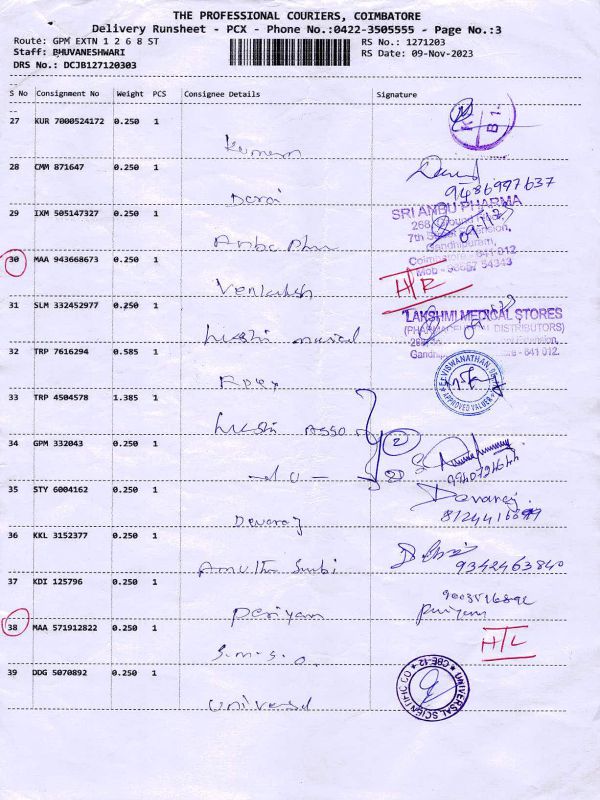 THE PROFESSIONAL COURIERS, COIMBATORE
Delivery Runsheet - PCX - Phone No.:0422-3505555 - Page No.:3
Route: GPM EXTN 1 2 6 8 ST
RS No.: 1271203
Staff: BHUVANESHWARI
RS Date: 09-Nov-2023
DRS No.: DCJB127120303
S No Consignment No Weight PCS Consignee Details Signature
27 KUR 7000524172 0.250 1
28 CMM 871647 0.250 1
9486997637
29 IXM 505147327 0.250 1
SRI ANBU PHARMA
268, Ground Floor,
7th Street Extension,
Gandhipuram,
Coimbatore - 641 012
Mob - 98667 54343
30 MAA 943668673 0.250 1
Venkatesh
31 SLM 332452977 0.250 1
LAKSHMI MEDICAL STORES
(PHARMACEUTICAL DISTRIBUTORS)
Extension,
Gandhipuram, Coimbatore - 641 012.
32 TRP 7616294 0.585 1
Apex
VISWANATHAN
APPROVED VALUER
33 TRP 4504578 1.385 1
2
34 GPM 332043 0.250 1
35 STY 6004162 0.250 1
Devaraj
Devaraj
36 KKL 3152377 0.250 1
9342463840
37 KDI 125796 0.250 1
Periyam
38 MAA 571912822 0.250 1
S.M.S.O.
39 DDG 5070892 0.250 1
Universal
UNIVERSAL SCIENTIFIC CO
CBE-12